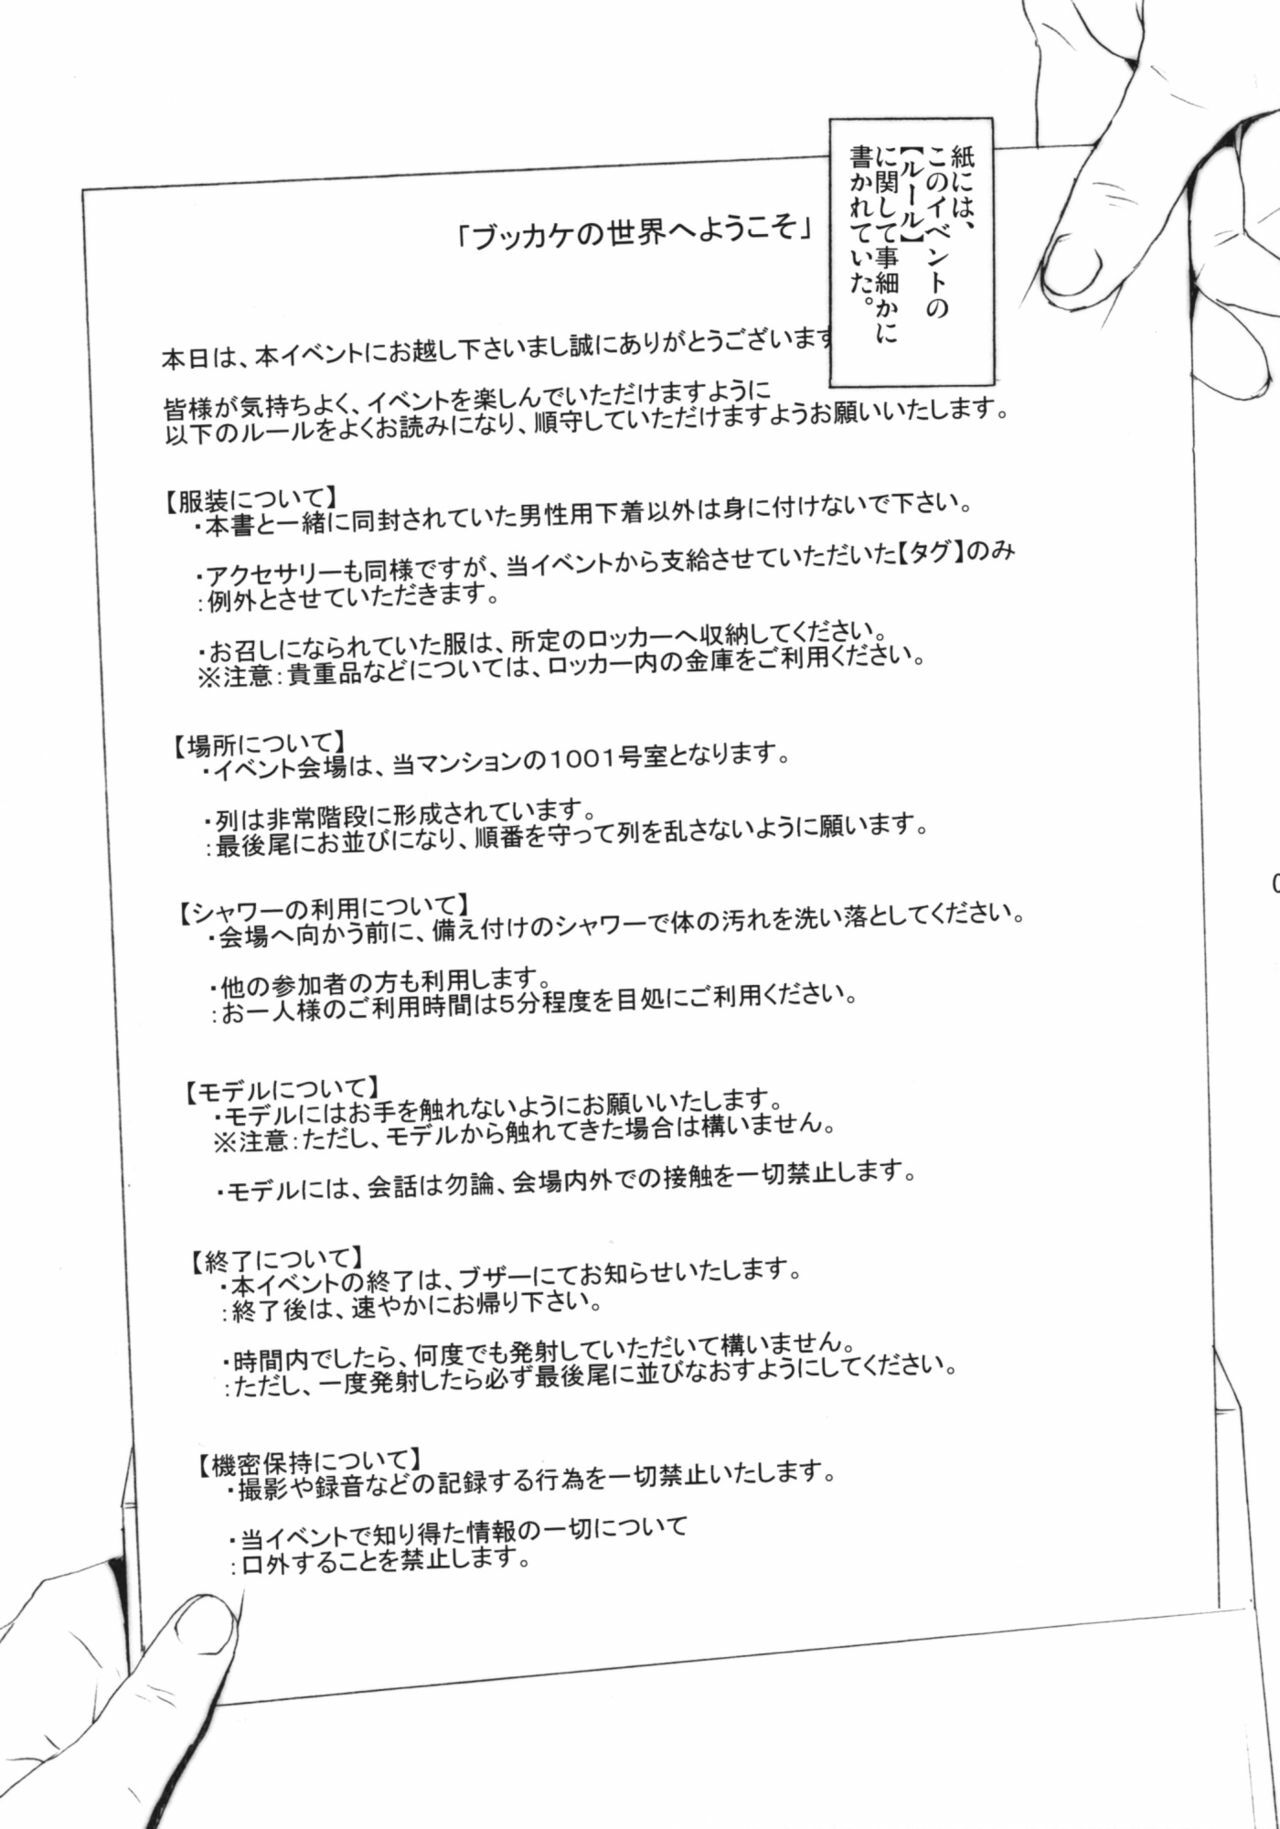 紙には、
このイベントの
【ルール】
に関して事細かに
書かれていた。
「ブッカケの世界へようこそ」
本日は、本イベントにお越し下さいまし誠にありがとうございます
皆様が気持ちよく、イベントを楽しんでいただけますように
以下のルールをよくお読みになり、順守していただけますようお願いいたします。
【服装について】
・本書と一緒に同封されていた男性用下着以外は身に付けないで下さい。
・アクセサリーも同様ですが、当イベントから支給させていただいた【タグ】のみ
:例外とさせていただきます。
・お召しになられていた服は、所定のロッカーへ収納してください。
※注意:貴重品などについては、ロッカー内の金庫をご利用ください。
【場所について】
・イベント会場は、当マンションの1001号室となります。
・列は非常階段に形成されています。
:最後尾にお並びになり、順番を守って列を乱さないように願います。
【シャワーの利用について】
・会場へ向かう前に、備え付けのシャワーで体の汚れを洗い落としてください。
・他の参加者の方も利用します。
:お一人様のご利用時間は5分程度を目処にご利用ください。
【モデルについて】
・モデルにはお手を触れないようにお願いいたします。
※注意:ただし、モデルから触れてきた場合は構いません。
・モデルには、会話は勿論、会場内外での接触を一切禁止します。
【終了について】
・本イベントの終了は、ブザーにてお知らせいたします。
:終了後は、速やかにお帰り下さい。
・時間内でしたら、何度でも発射していただいて構いません。
:ただし、一度発射したら必ず最後尾に並びなおすようにしてください。
【機密保持について】
・撮影や録音などの記録する行為を一切禁止いたします。
・当イベントで知り得た情報の一切について
:口外することを禁止します。